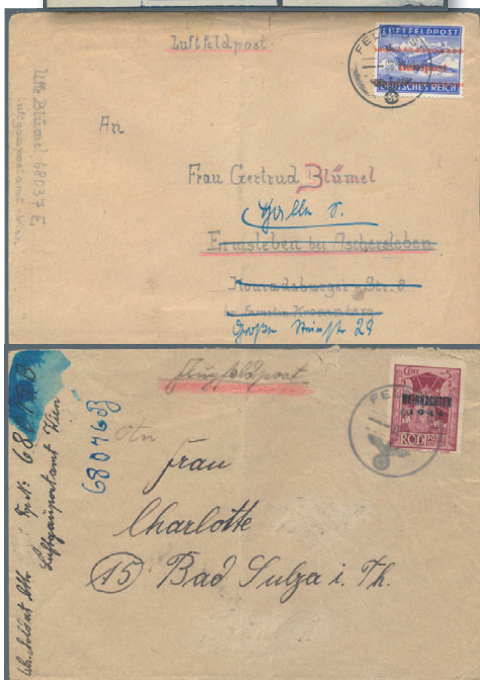 Luftfeldpost
LUFTFELDPOST
DEUTSCHES REICH
FELDPOST
Uffz Blümel 68037 E
Luftgaupostamt Wien
An
Frau Gertrud Blümel
Halle S.
Ermsleben bei Aschersleben
Konradsburger-Str. 8
bei Familie
Große Steinstr 29
Flugfeldpost
WEIHNACHTEN
1944
An
Frau
Charlotte
15 Bad Sulza i. Th.
68046 B
Luftgaupostamt Wien